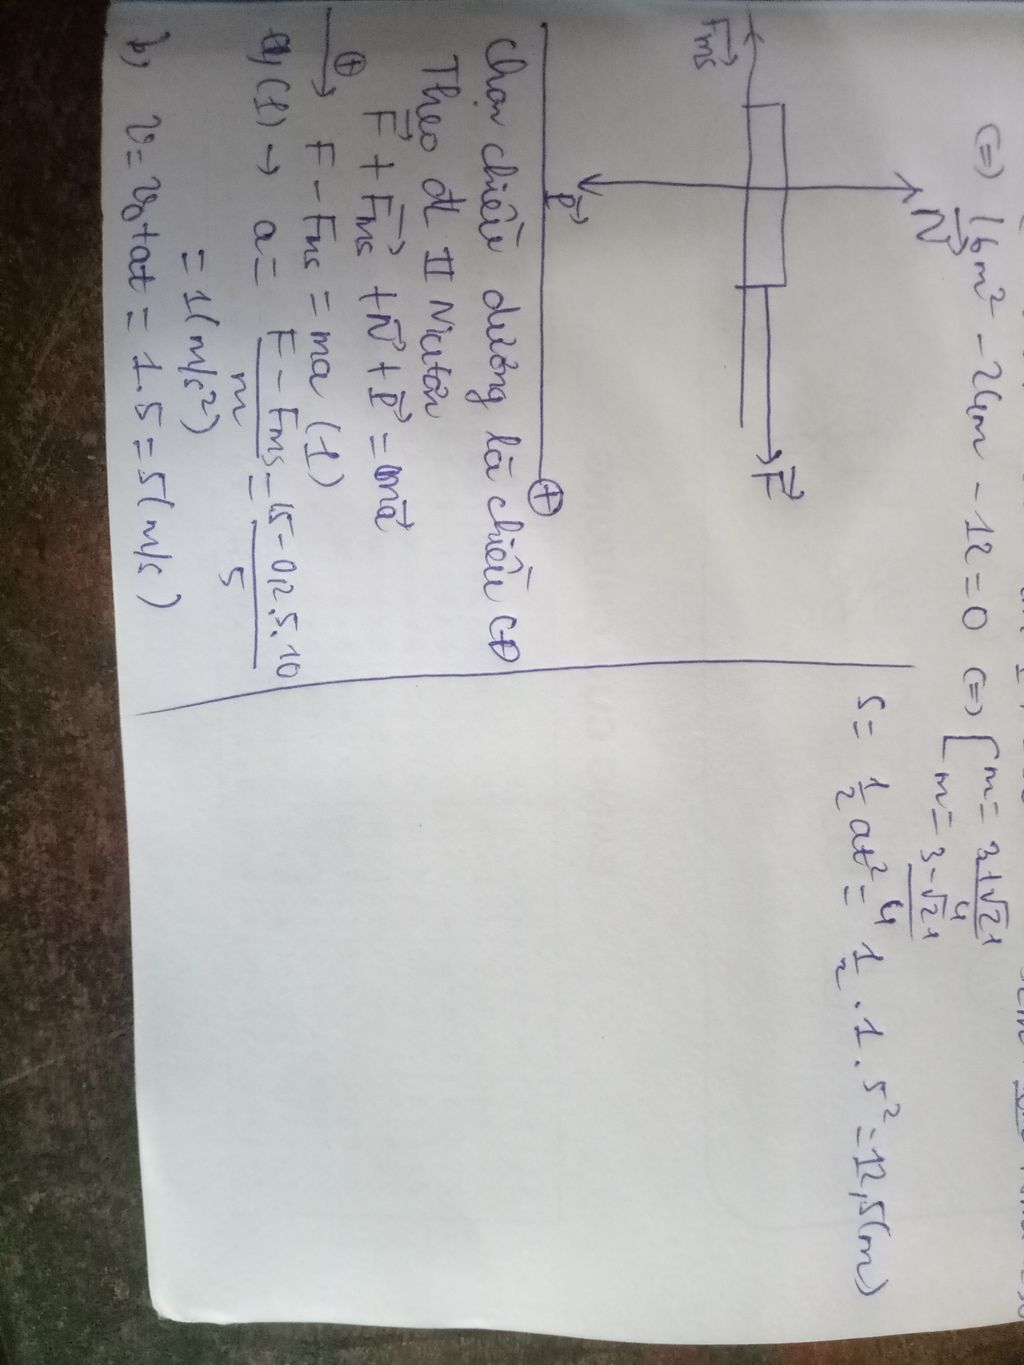 (=) 16m² - 24m - 12 = 0 (=) [ m = 3+√21 / 4
m = 3-√21 / 4
N⃗
F⃗ms
F⃗
P⃗
+
Chọn chiều dương là chiều CĐ
Theo đl II Niutơn
F⃗ + F⃗ms + N⃗ + P⃗ = ma⃗
+ F - Fms = ma (1)
a) (1) → a = F - Fms / m = 15 - 0,2.5.10 / 5
= 1 (m/s²)
b) v = v₀ + at = 1.5 = 5 (m/s)
S = 1/2 at² = 1/2 . 1 . 5² = 12,5 (m)